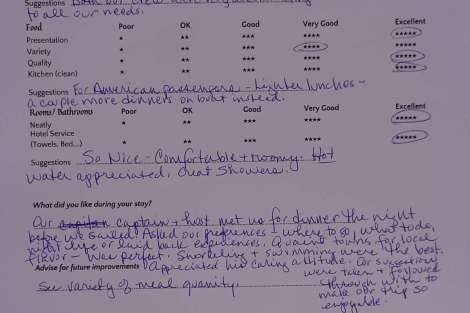 Suggestions Both our crew were
to all our needs.
Food Poor OK Good Very Good Excellent
Presentation * ** *** **** *****
Variety * ** *** **** *****
Quality * ** *** **** *****
Kitchen (clean) * ** *** **** *****
Suggestions For American passengers - lighter lunches -
a couple more dinners on boat instead.
Rooms/ Bathrooms Poor OK Good Very Good Excellent
Neatly * ** *** **** *****
Hotel Service
(Towels, Bed...) * ** *** **** *****
Suggestions So Nice - Comfortable + roomy. Hot
water appreciated, Great Showers.
What did you like during your stay?
Our captain + host met us for dinner the night
before we sailed! Asked our preferences - where to go, what to do,
or laid back experiences. Quaint towns for local
flavor - was perfect. Snorkeling + swimming were the best.
Advise for future improvements Appreciated his caring attitude. Our suggestions
were taken + followed
See variety of meal quanity. through with to
make our trip so
enjoyable.